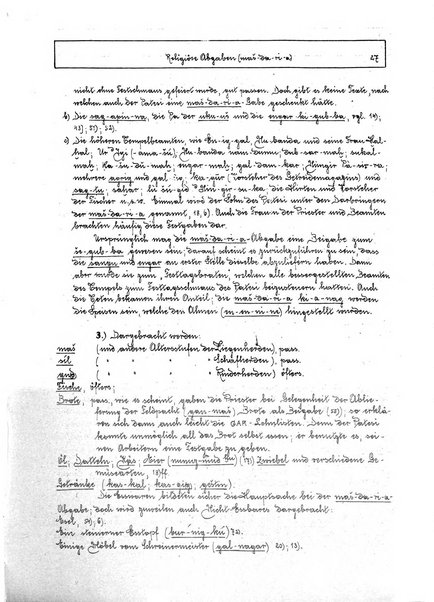 Religiöse Abgaben (maš-da-ri-a) 27
nicht ohne Festschmaus gefeiert wurde, gut passen. Doch gibt es keine Texte, nach
welchen auch der Patesi eine maš-da-ri-a-Gabe geschenkt hätte.
b) Die sag-apin-na, die Pa der uku-uš und die engar ki-gub-ba, vgl. 19);
43); 51); 52).
c) Die höheren Tempelbeamten, wie En-ig-gal, Nu-banda, und seine Frau
hal; (-ama-šu); Nu-banda, nam-dumu; dub-sar-mah; sukal-
mah; ka-šu-du; mah; engar-mah; gal-dam-kar;
mehrere agrig und gal: ka-gur (Vorsteher des Getreidemagazins) und
sag-tu; sahar; die Hirten und Vorsteher
der Fischer u.s.w. Einmal wird der Sohn des Patesi unter den Darbringern
der maš-da-ri-a genannt, 18,6). Auch die Frauen der Priester und Beamten
brachten häufig diese Festgaben dar.
Ursprünglich mag die maš-da-ri-a-Abgabe eine Beigabe zum
ie-gub-ba gewesen sein; darauf scheint es zurückzuführen zu sein, dass
die sangu und engar an erster Stelle dieselbe abzuliefern haben. Dann
aber wurde sie zum Festtagsbraten, welchen alle bessergestellten Beamten
des Tempels zum Festtagsschmaus des Patesi beizusteuern hatten. Auch
die Toten bekamen ihren Anteil; die maš-da-ri-a ki-a-nag werden
die Speisen sein, welche den Ahnen (en-en-ni-ne) hingestellt wurden.
3.) Dargebracht werden:
maš (und andere Altersstufen der Ziegenherden), pass.
sil ( " " " Schafherden), pass.
gud ( " " " Rinderherden) öfters.
Fische, öfters;
Brote, pass., wie es scheint, gaben die Priester bei Gelegenheit der Ablie-
ferung der Feldpacht (gan-maš) Brote als Beigabe (50); so erklä-
ren sich dann auch leicht die GAR-Lohnlisten. Denn der Patesi
konnte unmöglich all das Brot selbst essen; er benutzte es, sei-
nen Arbeitern eine Festgabe zu geben.
Öl; Datteln; Käs; Eier (nunuz-und) (47) Zwiebel und verschiedene Ge-
müsearten, 18)ff
Getränke (kas-kal; kas-gig; geštin).
Die Esswaren bildeten sicher die Hauptsache bei der maš-da-ri-a-
Abgabe; doch wird zuweilen auch Nicht-Essbares dargebracht:
Esel, 54); 6).
Ein steinerner Topf (bur-) 72).
Einige Möbel vom Schreinermeister (gal-nagar) 20); 13).